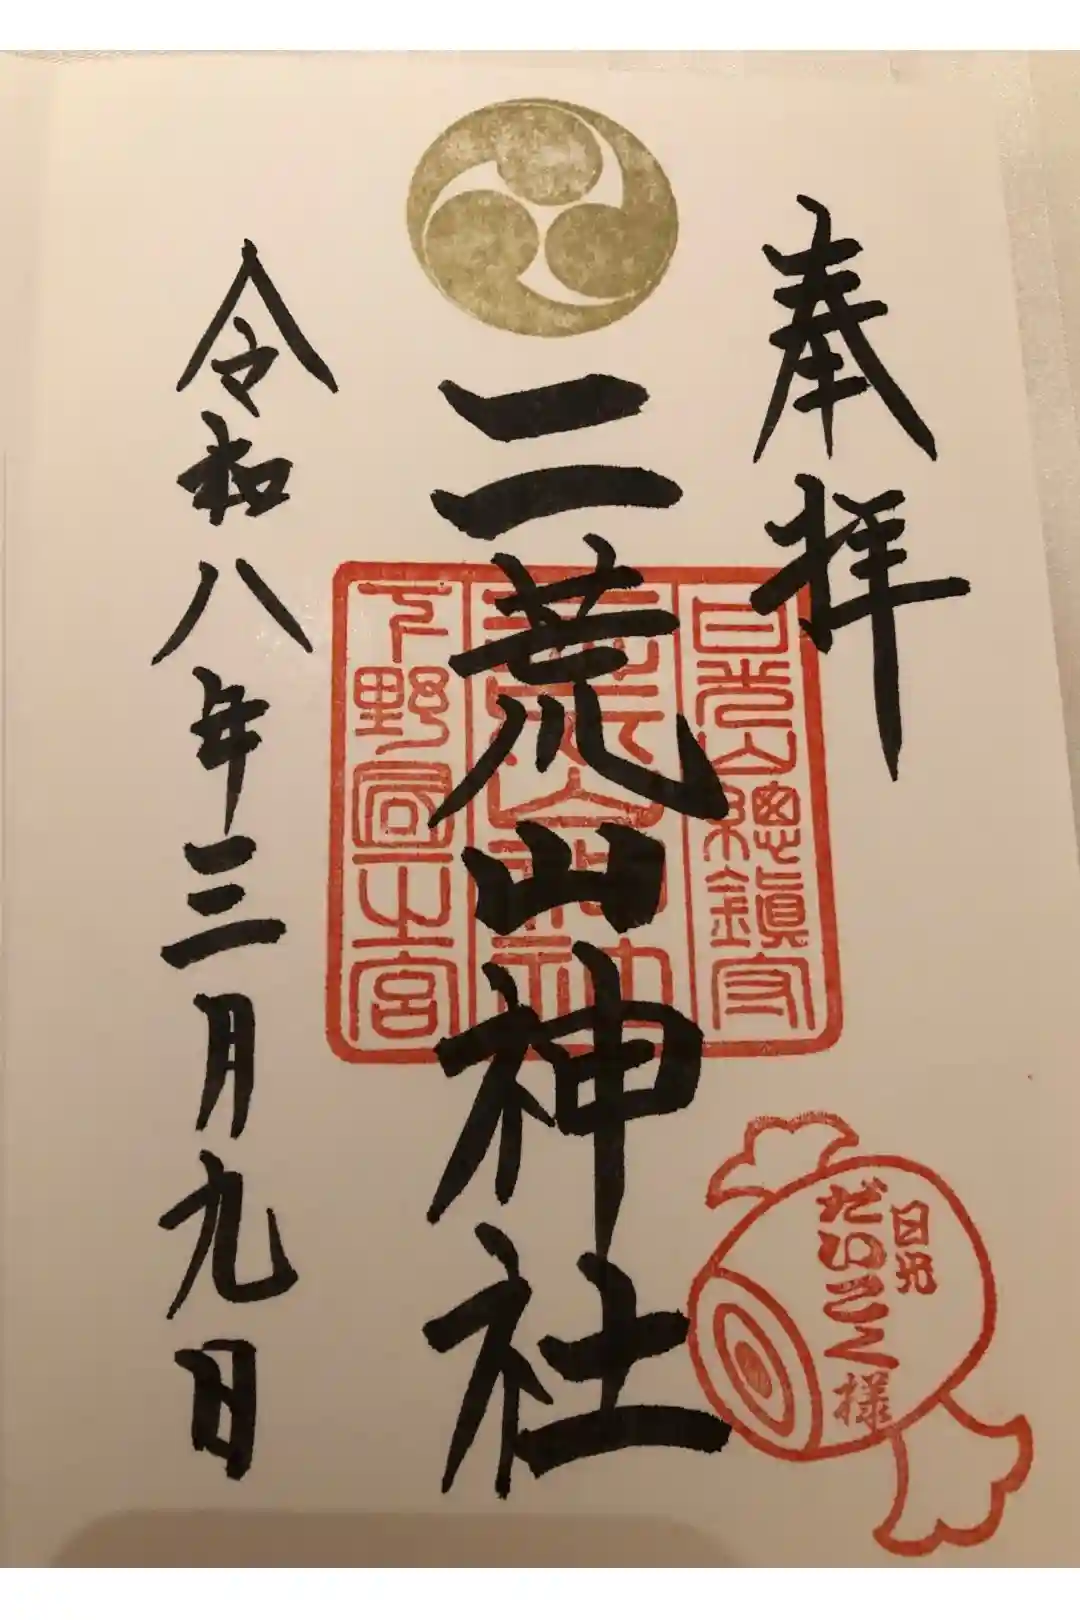 奉拝
日光山總鎮守
二荒山神社
二荒山神社
下野國一之宮
令和八年三月九日
日光
だいこく様